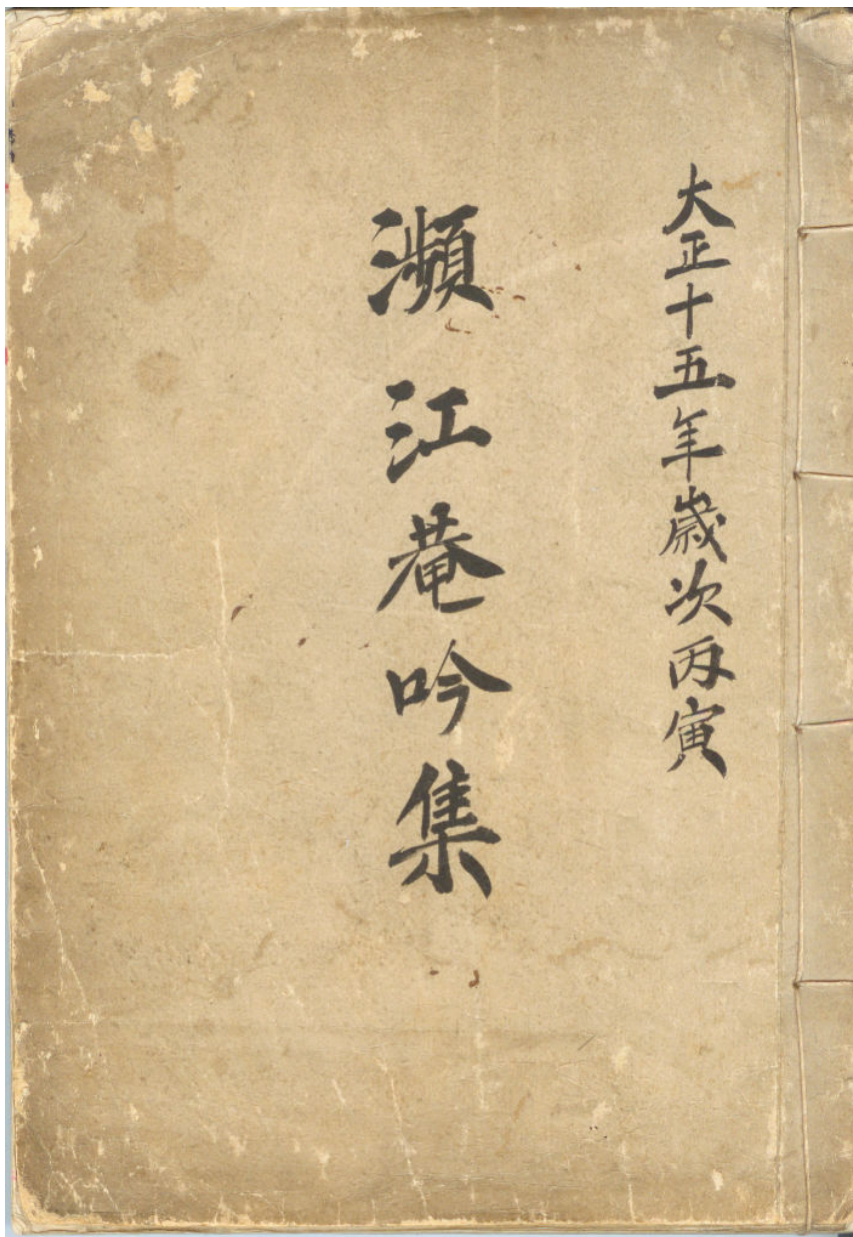 大正十五年歲次丙寅
瀕江菴吟集